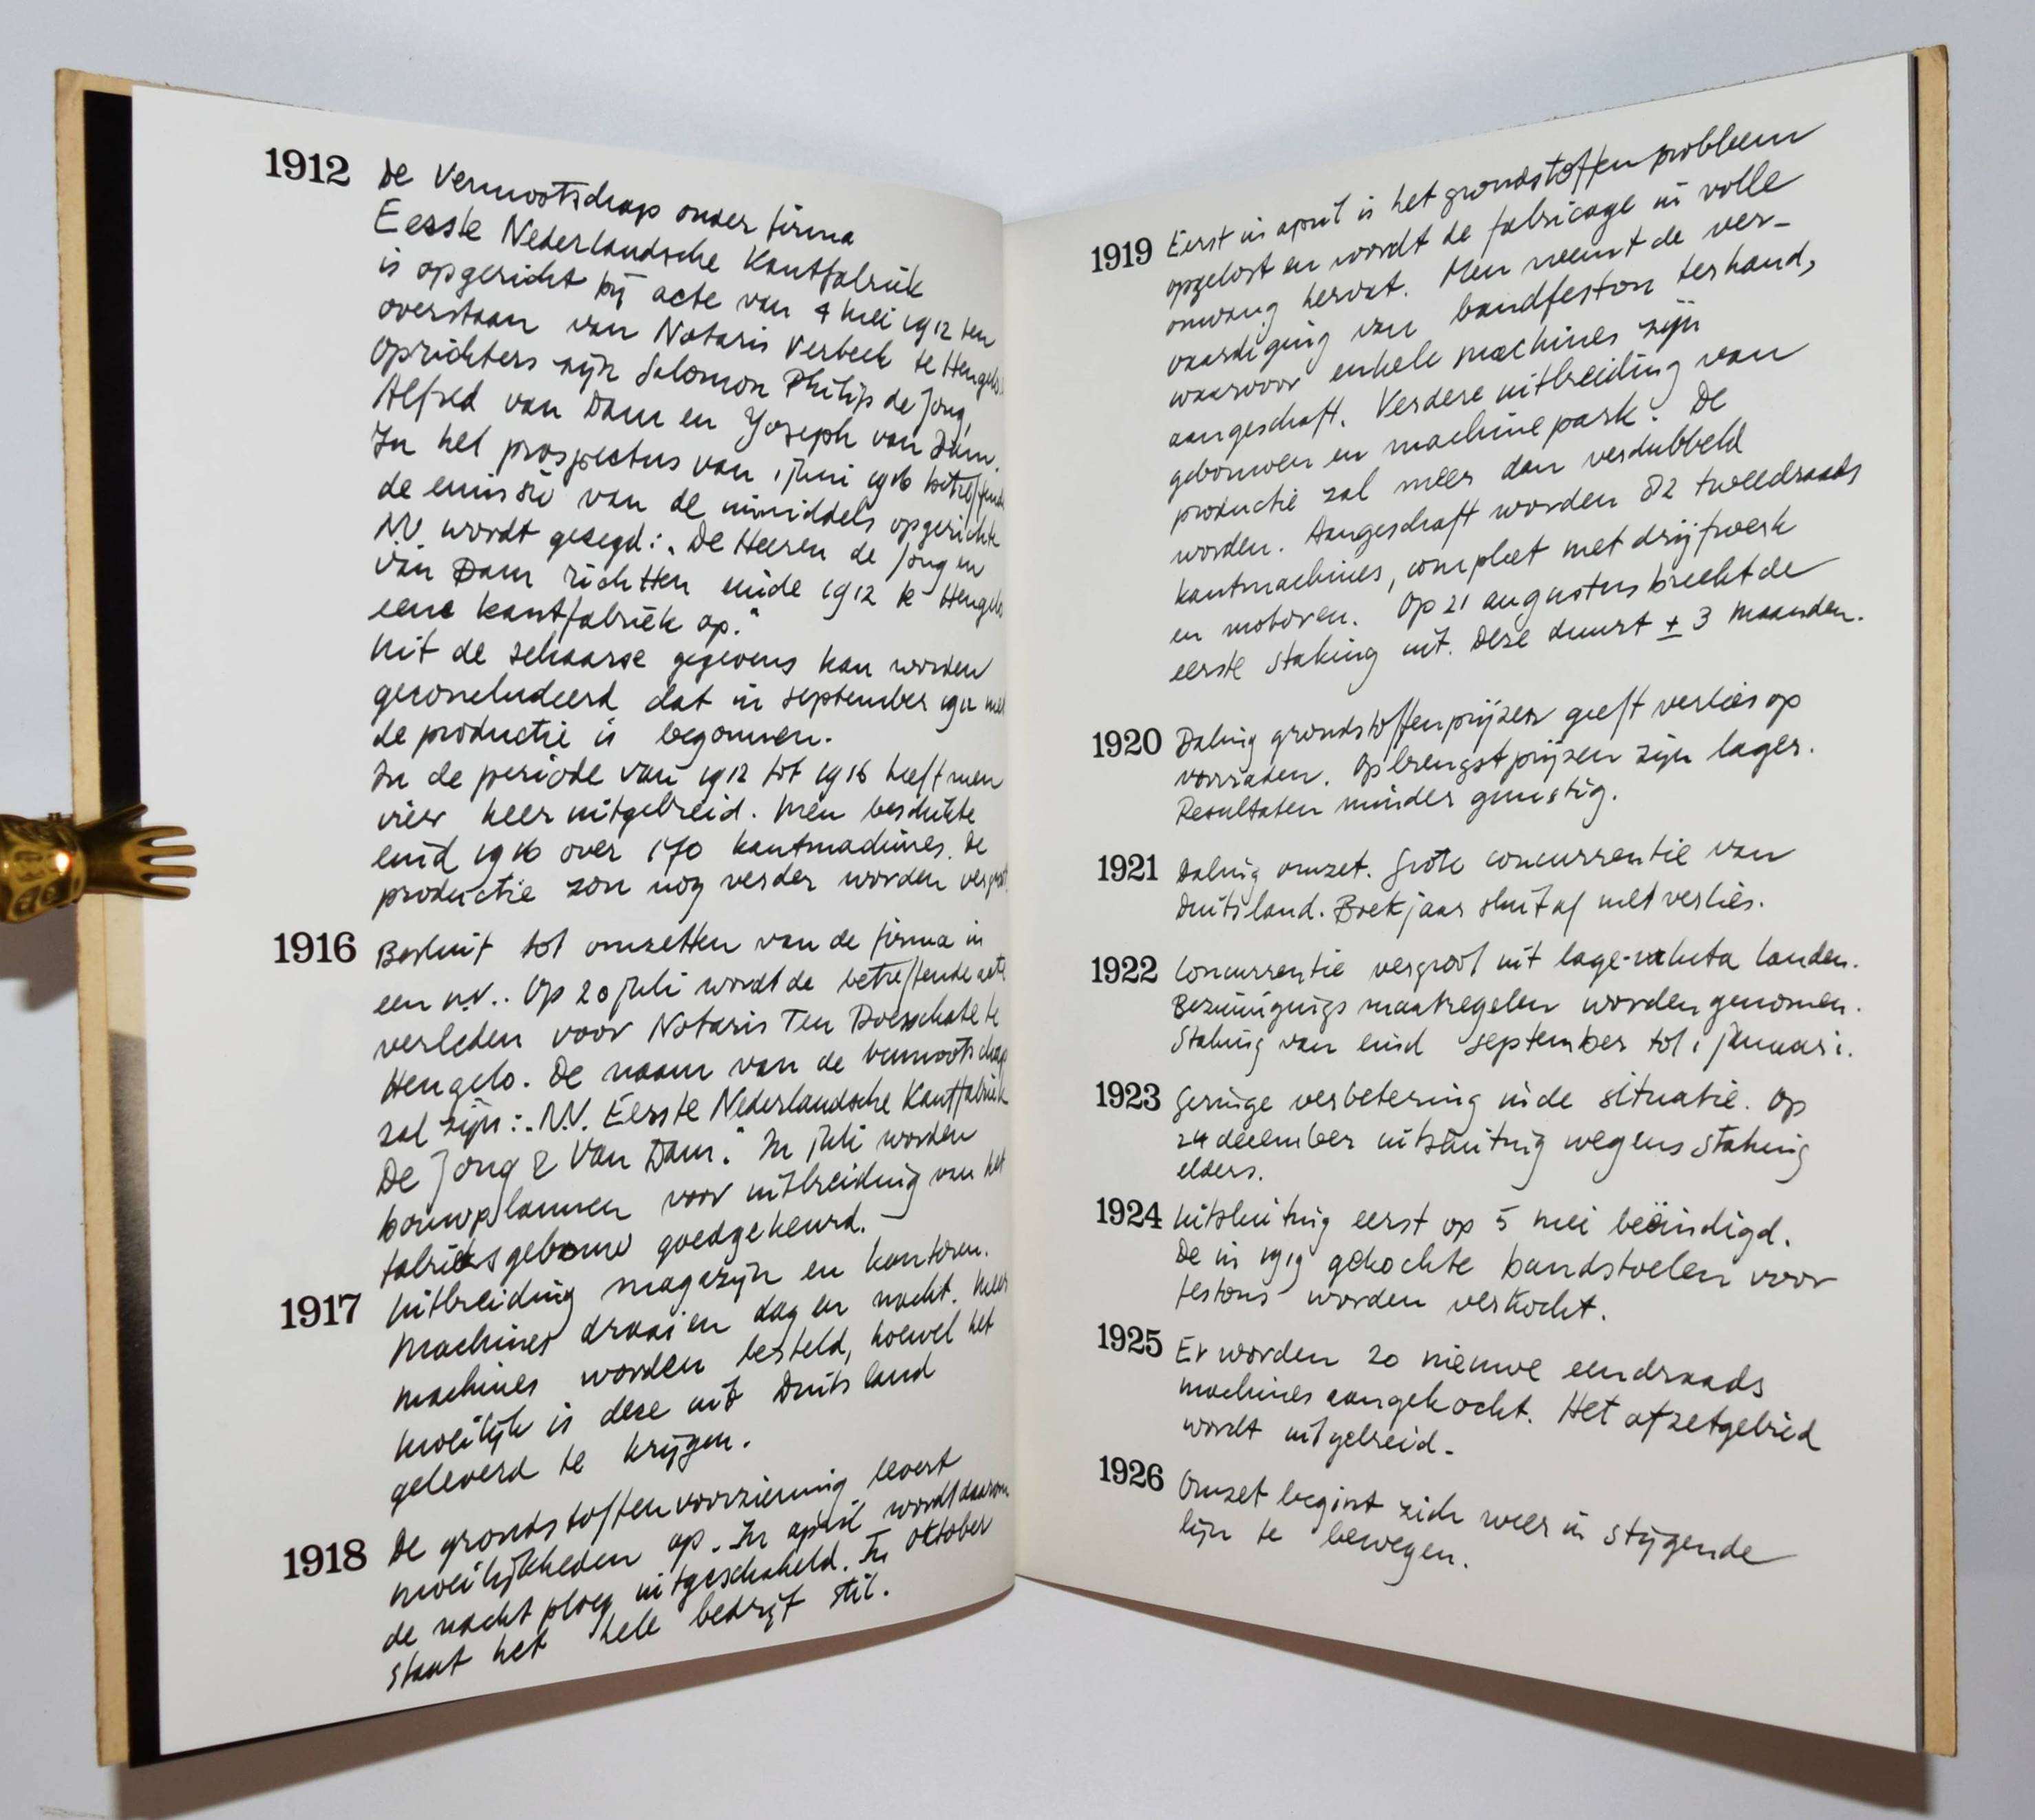 1912 De Vennootschap onder firma
Eerste Nederlandsche Kantfabriek
is opgericht bij acte van 4 mei 1912 ten
overstaan van Notaris Verbeek te Hengelo.
Oprichters zijn Salomon Philip de Jong,
Alfred van Dam en Joseph van Dam.
In het prospectus van 1 juni 1916 betreffende
de emissie van de inmiddels opgerichte
NV wordt gezegd: „De Heeren de Jong en
van Dam richtten einde 1912 te Hengelo
eene kantfabriek op."
Uit de schaarse gegevens kan worden
geconcludeerd dat in september 1912 met
de productie is begonnen.
In de periode van 1912 tot 1916 heeft men
vier keer uitgebreid. Men beschikte
eind 1916 over 170 kantmachines. De
productie zou nog verder worden vergroot.
1916 Besluit tot omzetten van de firma in
een n.v.. Op 20 juli wordt de betreffende acte
verleden voor Notaris Ten Doesschate te
Hengelo. De naam van de vennootschap
zal zijn: „N.V. Eerste Nederlandsche Kantfabriek
De Jong & Van Dam." In juli worden
bouwplannen voor uitbreiding van het
fabrieksgebouw goedgekeurd.
1917 Uitbreiding magazijn en kantoren.
Machines draaien dag en nacht. Meer
machines worden besteld, hoewel het
moeilijk is deze uit Duitsland
geleverd te krijgen.
1918 De grondstoffenvoorziening levert
moeilijkheden op. In april wordt daarom
de nachtploeg uitgeschakeld. In oktober
staat het hele bedrijf stil.
1919 Eerst in april is het grondstoffenprobleem
opgelost en wordt de fabricage in volle
omvang hervat. Men neemt de ver-
vaardiging van bandfeston ter hand,
waarvoor enkele machines zijn
aangeschaft. Verdere uitbreiding van
gebouwen en machinepark. De
productie zal meer dan verdubbeld
worden. Aangeschaft worden 82 tweedraads
kantmachines, compleet met drijfwerk
en motoren. Op 21 augustus breekt de
eerste staking uit. Deze duurt ± 3 maanden.
1920 Daling grondstoffenprijzen geeft verlies op
voorraden. Opbrengstprijzen zijn lager.
Resultaten minder gunstig.
1921 Daling omzet. Grote concurrentie van
Duitsland. Boekjaar sluit af met verlies.
1922 Concurrentie vergroot uit lage-valuta landen.
Bezuinigingsmaatregelen worden genomen.
Staking van eind september tot 1 januari.
1923 Geringe verbetering in de situatie. Op
24 december uitsluiting wegens staking
elders.
1924 Uitsluiting eerst op 5 mei beëindigd.
De in 1919 gekochte bandstoelen voor
festons worden verkocht.
1925 Er worden 20 nieuwe eendraads
machines aangekocht. Het afzetgebied
wordt uitgebreid.
1926 Omzet begint zich weer in stijgende
lijn te bewegen.